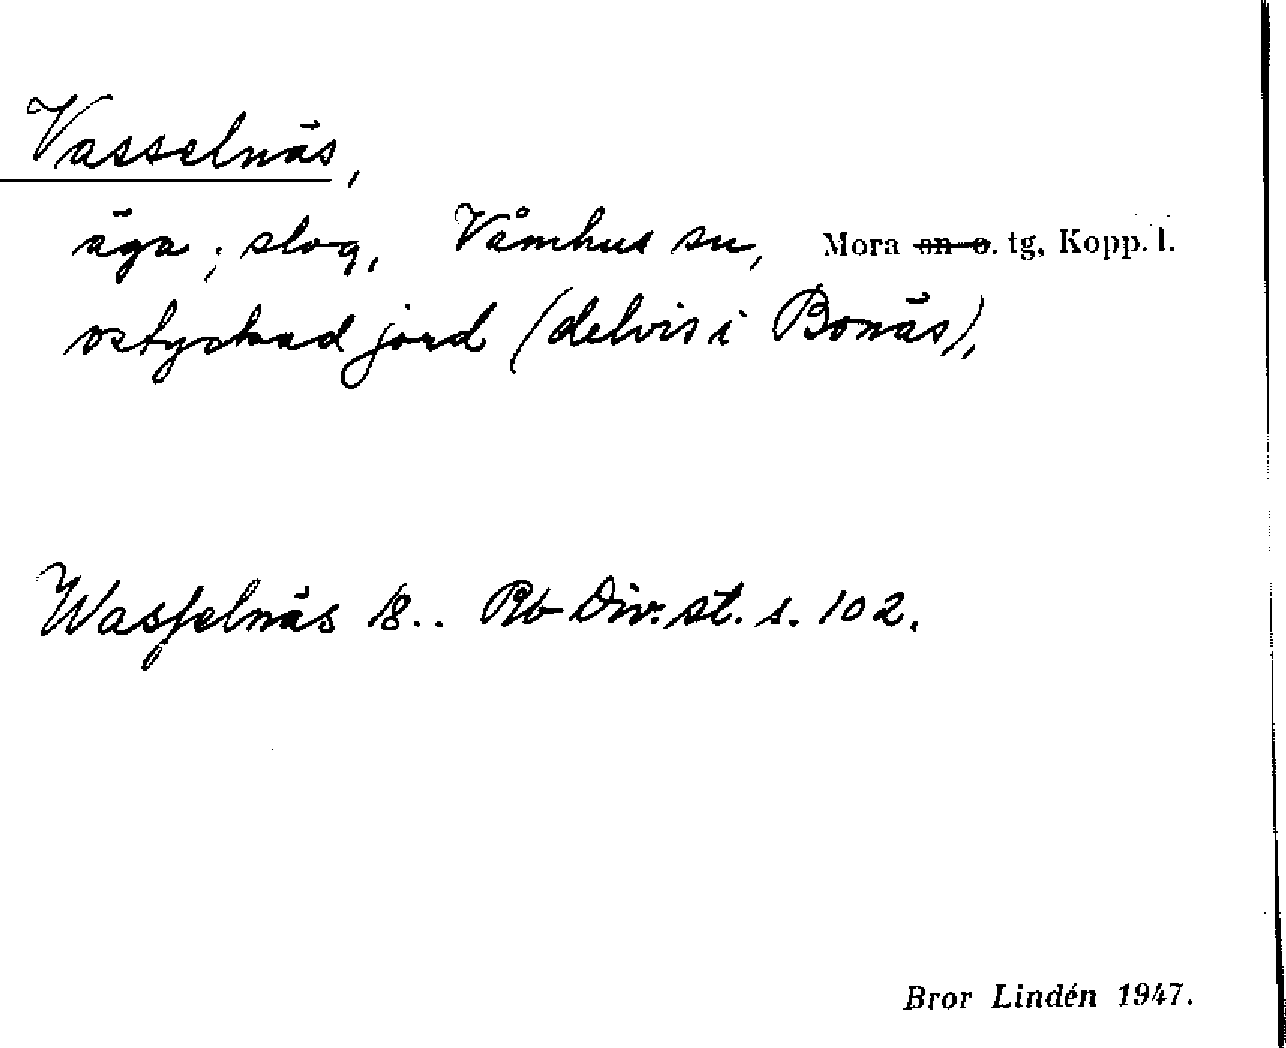 Vasselnäs,
äga; slog, Våmhus sn, Mora sn o. tg, Kopp. l.
ostyckad jord (delvis i Bonäs),
Wasſelnäs 18.. Rb Div. st. s. 102.
Bror Lindén 1947.